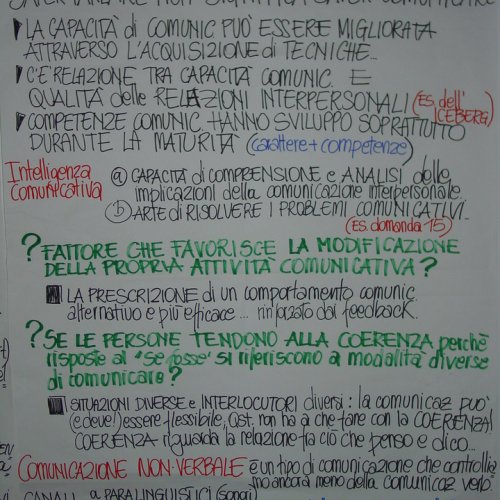 SAPER PARLARE NON SIGNIFICA SAPER COMUNICARE
LA CAPACITÀ di COMUNIC PUÒ ESSERE MIGLIORATA
ATTRAVERSO L'ACQUISIZIONE di TECNICHE...
C'È RELAZIONE TRA CAPACITÀ COMUNIC. E
QUALITÀ delle RELAZIONI INTERPERSONALI (ES. dell'
ICEBERG)
COMPETENZE COMUNIC. HANNO SVILUPPO SOPRATTUTTO
DURANTE LA MATURITÀ (carattere + competenze)
Intelligenza
Comunicativa
a CAPACITÀ di COMPRENSIONE e ANALISI delle
implicazioni della comunicazione interpersonale.
b ARTE di RISOLVERE I PROBLEMI COMUNICATIVI...
(ES. domanda 15)
? FATTORE CHE FAVORISCE LA MODIFICAZIONE
DELLA PROPRIA ATTIVITÀ COMUNICATIVA?
LA PRESCRIZIONE di un comportamento comunic.
alternativo e più efficace... rinforzato dal feedback.
? SE LE PERSONE TENDONO ALLA COERENZA perchè
risposte al "se fosse" si riferiscono a modalità diverse
di comunicare?
SITUAZIONI DIVERSE e INTERLOCUTORI diversi: la comunicaz può
(e deve!) essere flessibile, Qst. non ha a che fare con la COERENZA!
COERENZA riguarda la relazione fra ciò che penso e dico...
COMUNICAZIONE NON VERBALE è un tipo di comunicazione che controllia
mo ancora meno della comunicaz verb.
CANALI a PARALINGUISTICI (suoni)